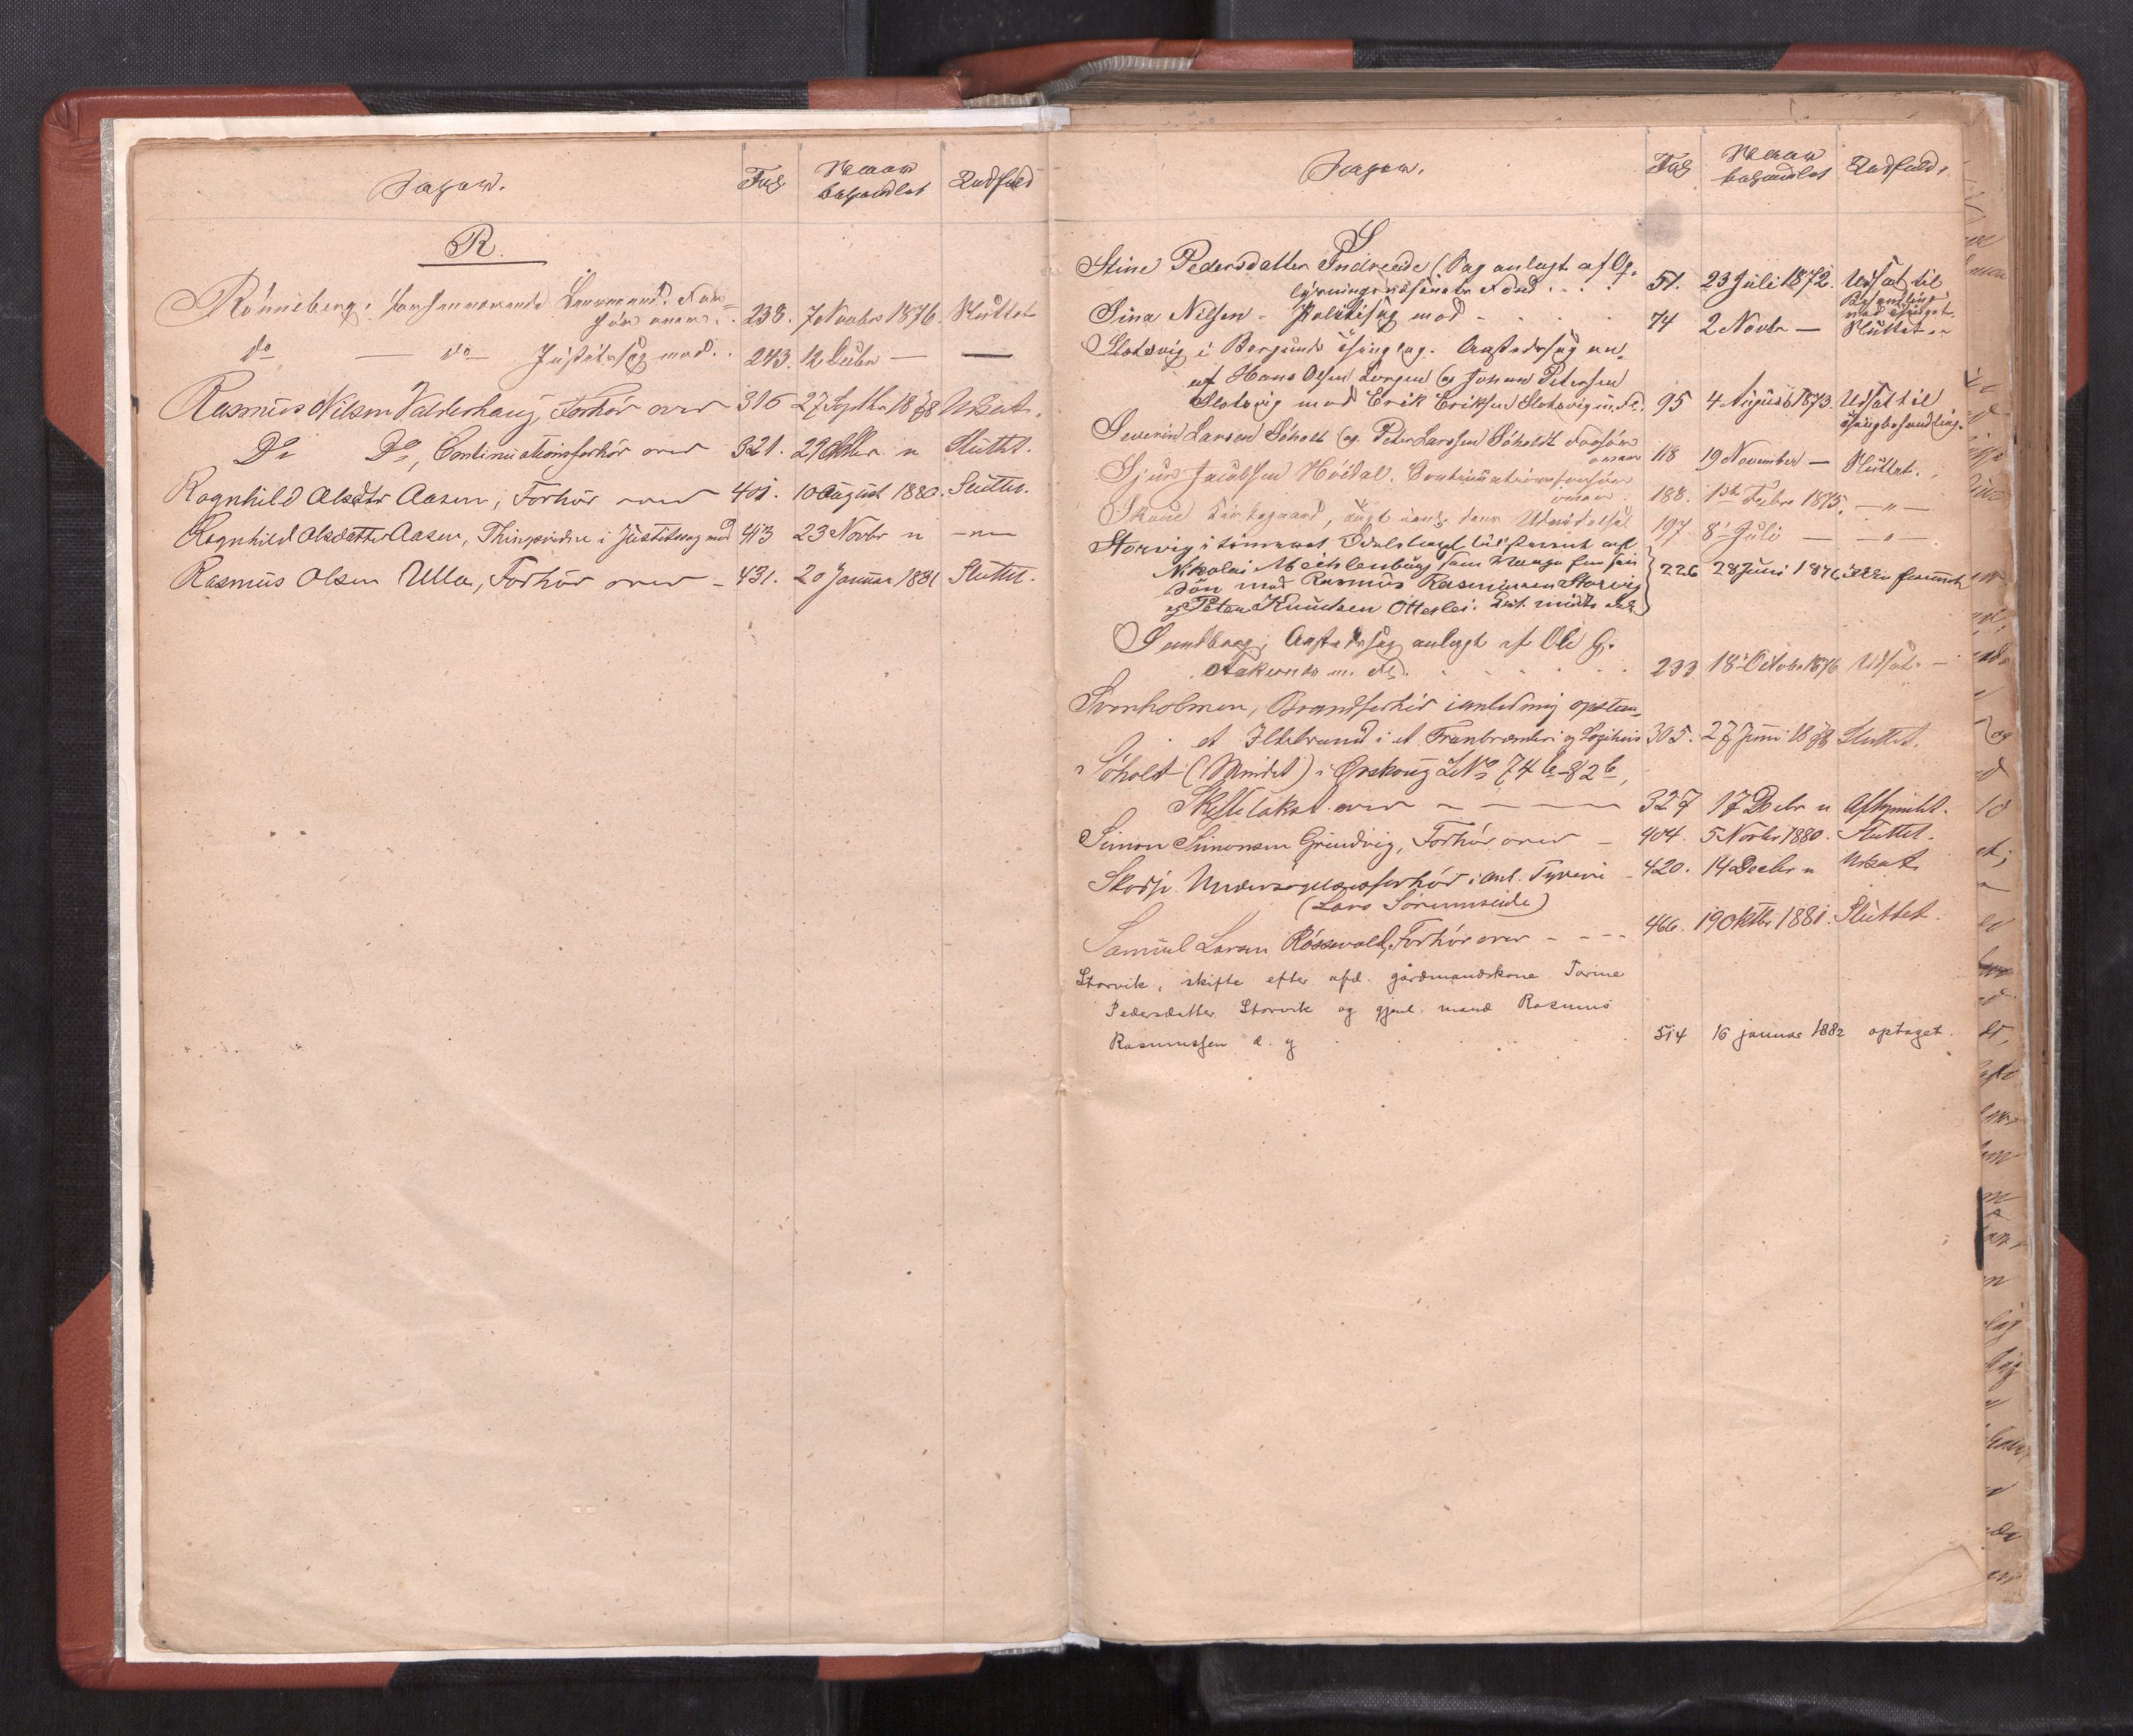 Sagen.
Fol.
Naar
behandlet
Udfald
R.
Rönneberg, Lensmand, For=
hör over . . 238. 7 Novbr 1876. Sluttet
do — do — Justitssag mod . . 243. 12 Decbr — —
Rasmus Nilsen Valderhaug, Forhör over 316 27 Septbr 1878 Udsat.
Do Do, Continuationsforhör over 321. 29 Oktbr " Sluttet.
Ragnhild Olsdtr Aasen, Forhör over 401. 10 August 1880. Sluttet.
Ragnhild Olsdatter Aasen, Thingsvidne i Justitssag mod 413 23 Novbr " — " —
Rasmus Olsen Ulla, Forhör over - 431. 20 Januar 1881 Sluttet.
Sagen.
Fol
Naar
behandlet
Udfald.
S
Stine Pedersdatter Indreeide (Sag anlagt af Op=
lysningsvæsenets Fond . . . 51. 23 Juli 1872. Udsat til
Behandling
ved Thinget.
Sina Nilsen - Politisag mod - . . . 74 2 Novbr — Sluttet.
Slotsvig i Borgunds Thinglag. Aastedssag an.
af Hans Olsen Longva og Johan Petersen
Slotsvig mod Erik Eriksen Slotsvig m. Fl. 95 4 August 1873. Udsat til
Thingbehandling.
Severin Larsen Söholt og Peter Larssen Söholdt Forhör
over 118 19 November — Sluttet.
Sjur Jacobsen Höidal. Continuationsforhör
over. 188. 1st Febr 1875. — " —
Skoue Kirkegaard, angaaende dens Udvidelse 197 8 Juli — — " —
Storvig i Odelslagssögsmaal af
Nikolai Mechlenburg som Værge for sin
Sön mod Rasmus Rasmussen Storvig
og Peter Knudsen Otterlei. 226 28 Juni 1876
Sandberg, Aastedssag anlagt af Ole G.
Aakernes m. Fl. . . . . 233 18 Octobr 1876 Udsat. —
Svenholmen, Brandforhör i anledning opstaa=
et Ildebrand i et Tranbrænderi og Logihuus 305. 27 Juni 1878 Sluttet.
Söholt (Mindet) i Ørskoug LNo 74 b - 82 b,
Skiftetakst over — — — — 327 17 Debr " Afhjemlet.
Simon Simonsen Grindvig, Forhör over - 404. 5 Novbr 1880. Sluttet.
Skodje Undersögelsesforhör i anl. Tyveri - 420. 14 Decbr " Udsat
(Lars Sörumseide)
Samuel Larsen Rösevold, Forhör over - - - - 466. 19 Oktbr 1881. Sluttet.
Storvik, skifte efter afd. gårdmandskone Torine
Pedersdatter Storvik og gjenl. mand Rasmus
Rasmussen d. y . . . . 514 16 januar 1882 optaget.